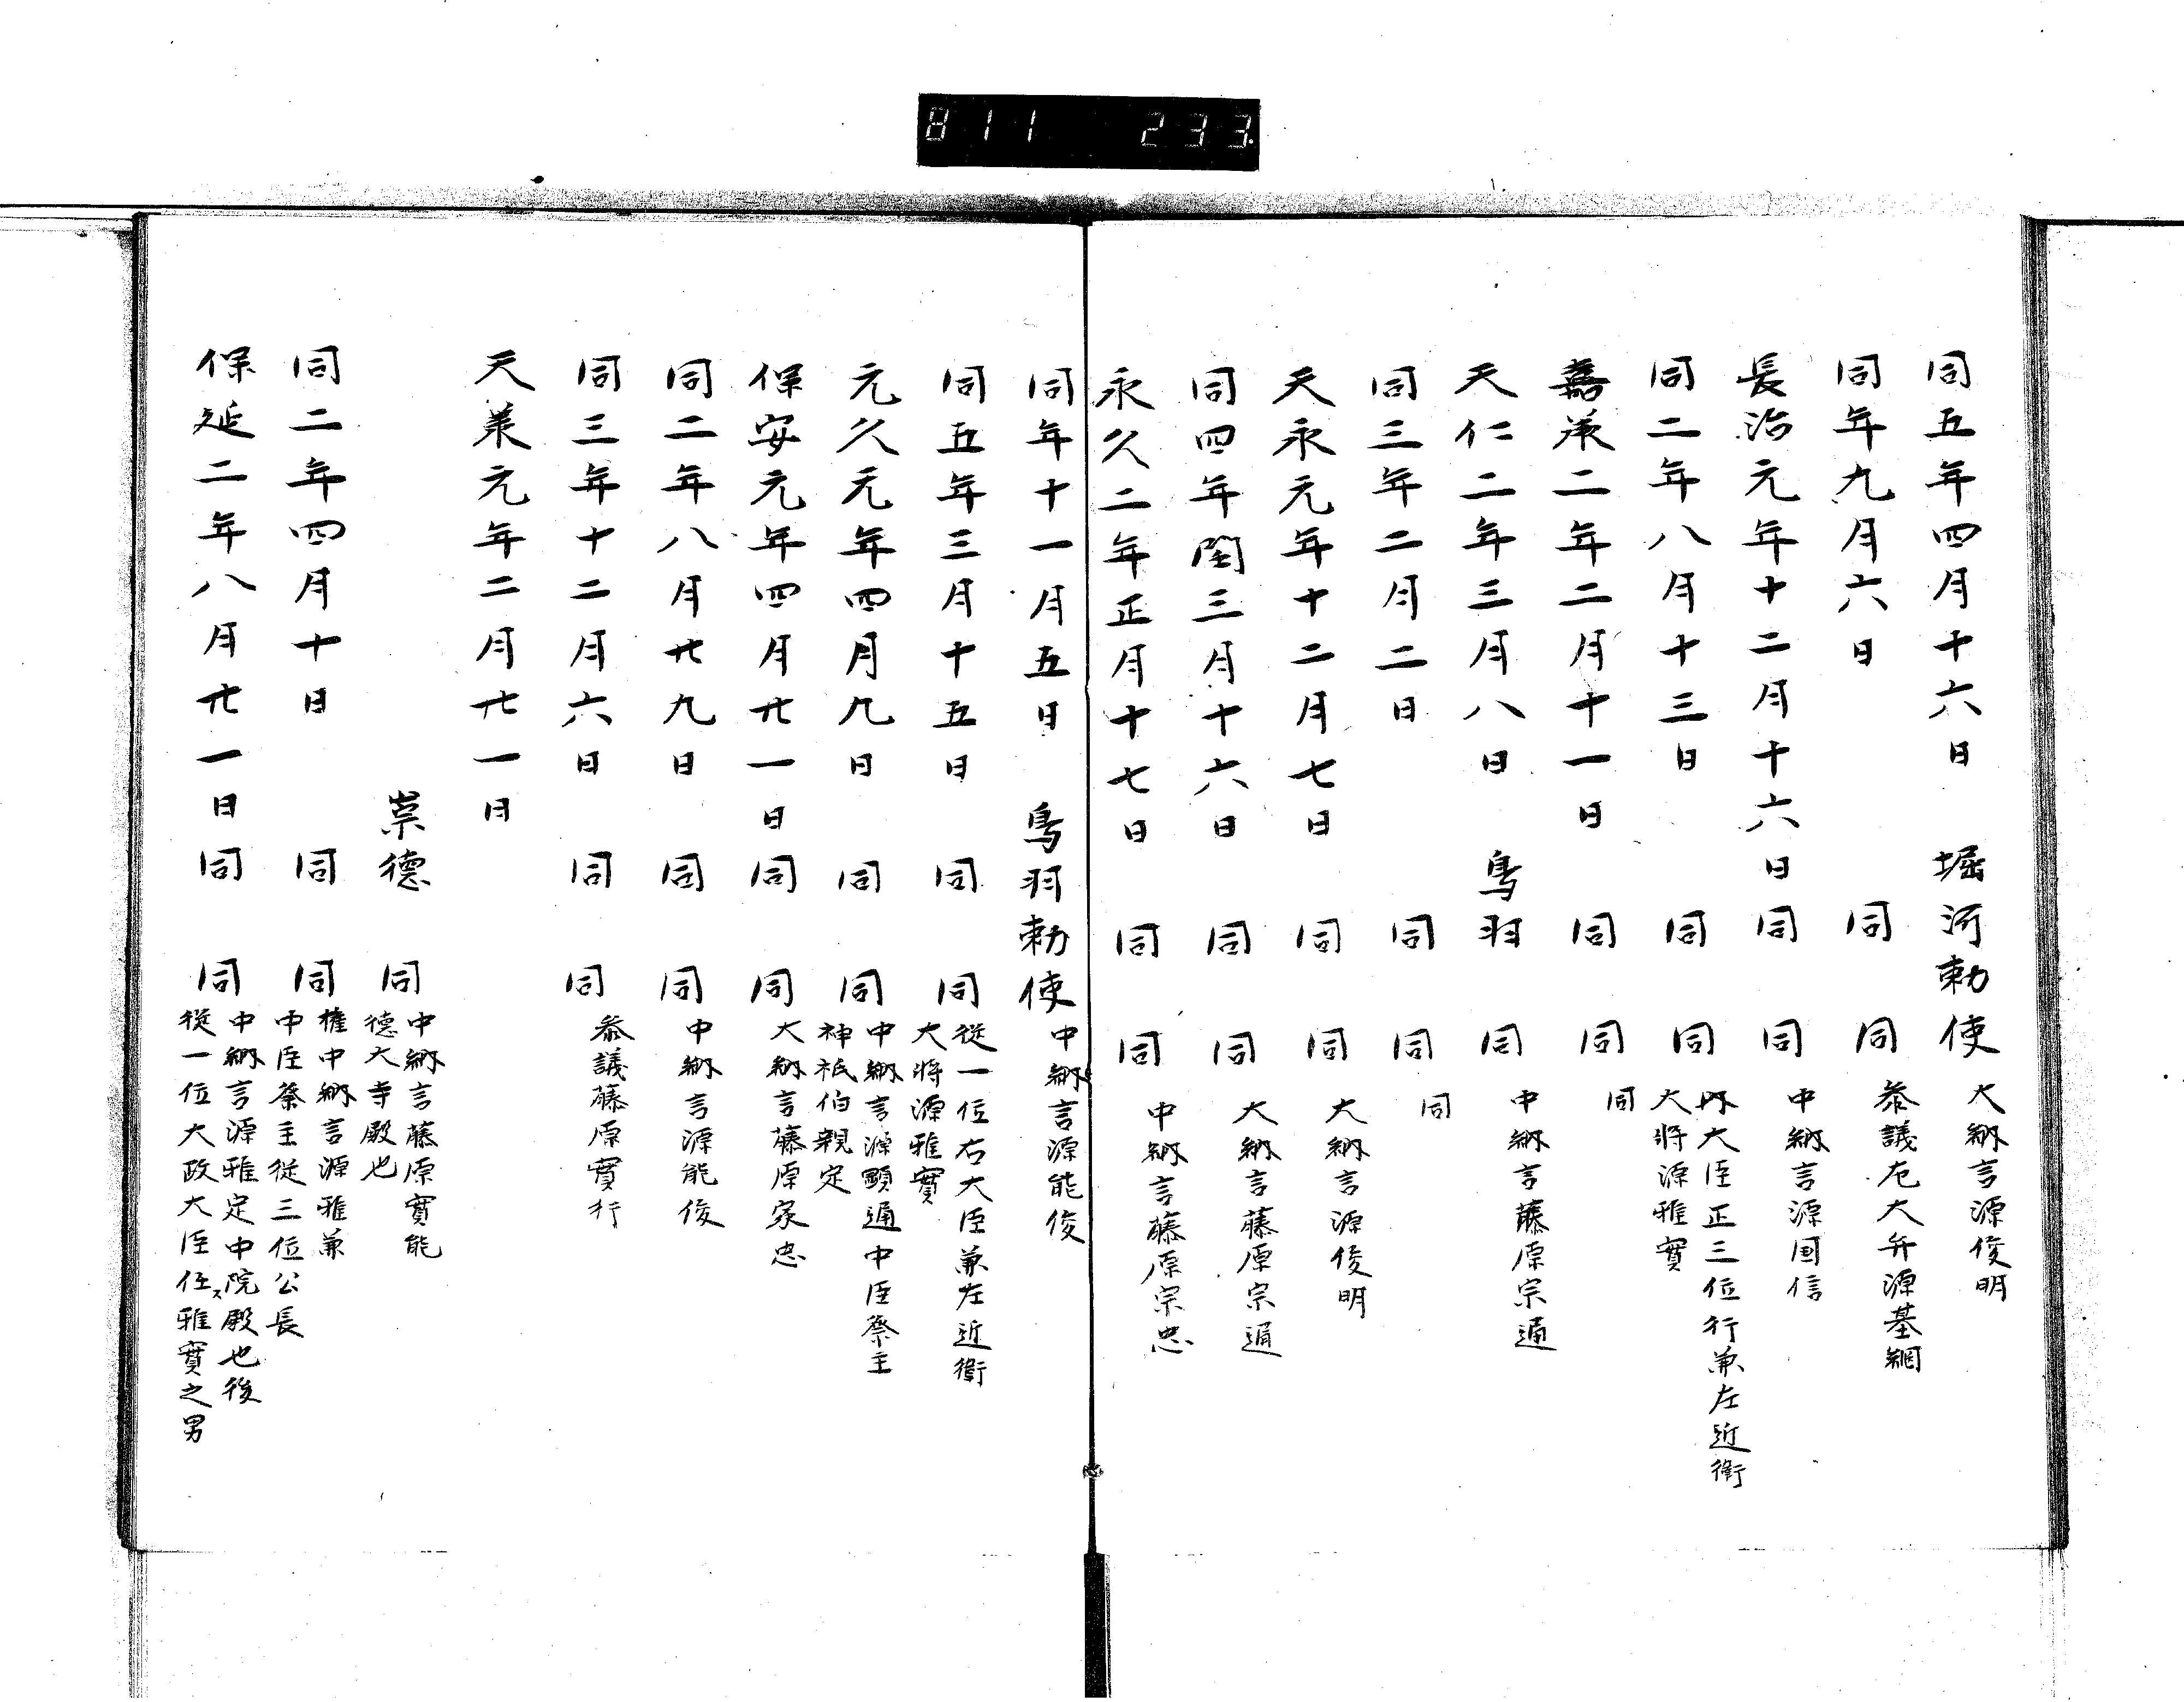 811 233
同五年四月十六日 堀河勅使 大納言源俊明
同年九月六日 同 同 参議左大弁源基綱
長治元年十二月十六日 同 同 中納言源国信
同二年八月十三日 同 同 内大臣正三位行兼左近衛
大将源雅實
嘉承二年二月十一日 同 同 同
天仁二年三月八日 鳥羽 同 中納言藤原宗通
同三年二月二日 同 同 同
天永元年十二月七日 同 同 大納言源俊明
同四年閏三月十六日 同 同 大納言藤原宗通
永久二年正月十七日 同 同 中納言藤原宗忠
同年十一月五日 鳥羽勅使 中納言源能俊
同五年三月十五日 同 同 従一位右大臣兼左近衛
大将源雅實
元久元年四月九日 同 同 中納言源顕通中臣祭主
神祇伯親定
保安元年四月廿一日 同 同 大納言藤原家忠
同二年八月廿九日 同 同 中納言源能俊
同三年十二月六日 同 同 参議藤原實行
天承元年二月廿一日
崇徳 同 中納言藤原實能
徳大寺殿也
同二年四月十日 同 同 権中納言源雅兼
中臣祭主従三位公長
保延二年八月廿一日 同 同 中納言源雅定中院殿也後
従一位大政大臣任ス雅實之男